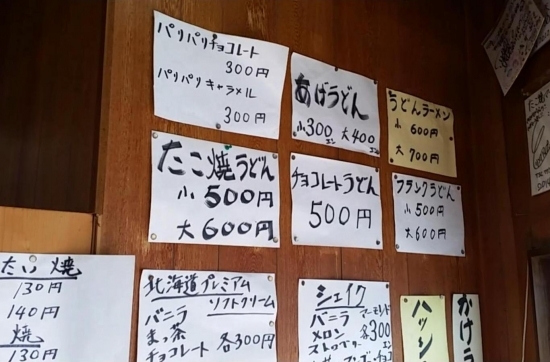 パリパリチョコレート
300円
パリパリキャラメル
300円
あげうどん
小300エン 大400エン
うどんラーメン
小 600円
大 700円
たこ焼うどん
小 500円
大 600円
チョコレートうどん
500円
フランクうどん
小500円
大600円
たい焼
130円
140円
焼
130円
北海道プレミアム
ソフトクリーム
バニラ
まっ茶
チョコレート 各300円
シェイク
バニラ
メロン 各300
ストロベリー
ハッシ
かけラ